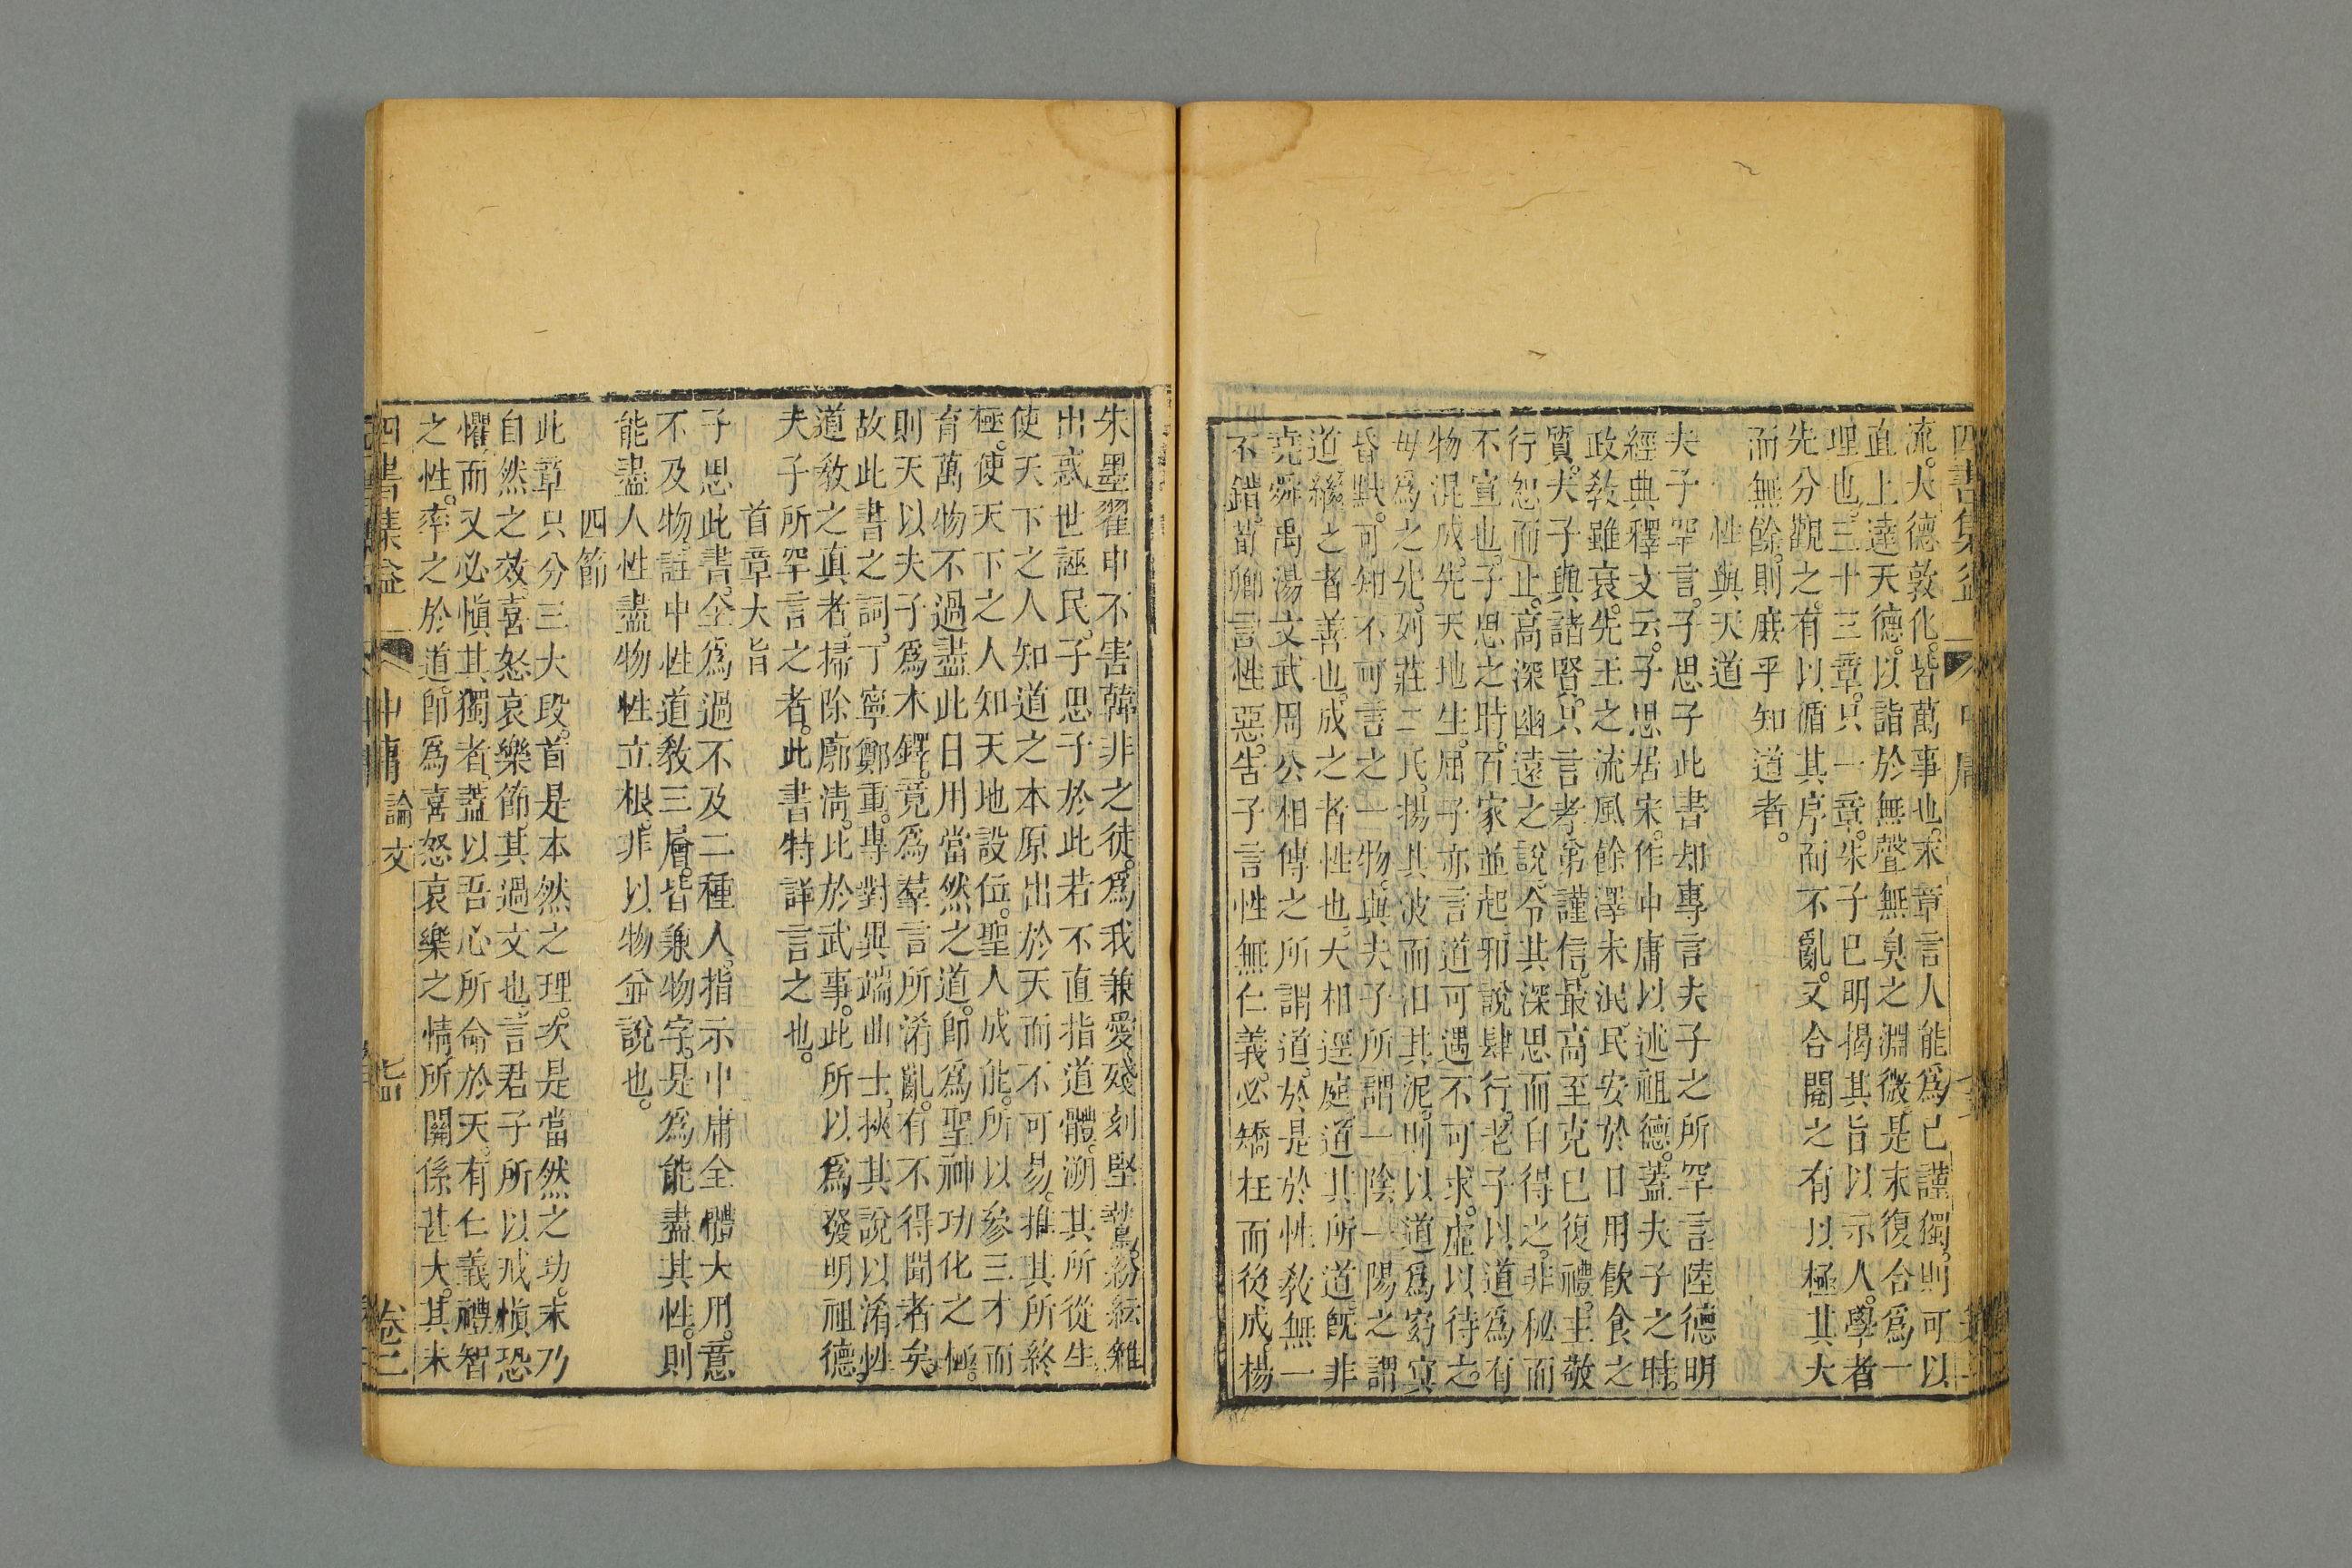 四書集益 中庸
流。大德敦化。皆萬事也。末章言人能爲己謹獨。則可以
直上達天德。以詣於無聲無臭之淵微。是末復合爲一
理也。三十三章。只一章。朱子已明揭其旨以示人。學者
先分觀之。有以循其序而不亂。又合閱之。有以極其大
而無餘。則庶乎知道者。
性與天道
夫子罕言。子思子此書却專言夫子之所罕言陸德明
經典釋文云。子思居宋。作中庸以述祖德。蓋夫子之時。
政敎雖衰。先王之流風餘澤未泯。民安於日用飮食之
質。夫子與諸賢。只言孝弟謹信。最高至克已復禮。主敬
行恕而止。高深幽遠之說。令其深思而自得之。非秘而
不宣也。子思之時。百家並起。邪說肆行。老子以道爲有
物混成。先天地生。屈子亦言道可遇不可求。虛以待之。
毋爲之先。列莊二氏。揚其波而汨其泥。則以道爲窈冥
昏默。可知不可言之一物。與夫子所謂一陰一陽之謂
道繼之者善也。成之者性也。大相逕庭道其所道旣非
堯舜禹湯文武周公相傳之所謂道。於是於性敎無一
不錯。荀卿言性惡。告子言性無仁義。必矯枉而後成。楊
朱墨翟申不害韓非之徒。爲我兼愛殘刻堅鷙。紛紜雜
出惑世誣民。子思子於此若不直指道體。溯其所從生
使天下之人知道之本原出於天而不可易。推其所終
極。使天下之人知天地設位。聖人成能。所以參三才而
育萬物不過盡此日用當然之道。卽爲聖神功化之極。
則天以夫子爲木鐸。竟爲羣言所淆亂。有不得聞者矣
故此書之詞。丁寧鄭重。專對異端曲士。挾其說以淆性
道敎之眞者。掃除廓淸。比於武事。此所以爲發明祖德。
夫子所罕言之者。此書特詳言之也。
首章大旨
子思此書。全爲過不及二種人。指示中庸全體大用。意
不及物。註中性道敎三層。皆兼物字。是爲能盡其性。則
能盡人性盡物性立根。非以物並說也。
四節
此章只分三大段。首是本然之理。次是當然之功。末乃
自然之效。喜怒哀樂節。其過文也。言君子所以戒愼恐
懼。而又必愼其獨者。蓋以吾心所命於天。有仁義禮智
之性。率之於道。卽爲喜怒哀樂之情所關係甚大。其未
四書集益 中庸 論文 卷二